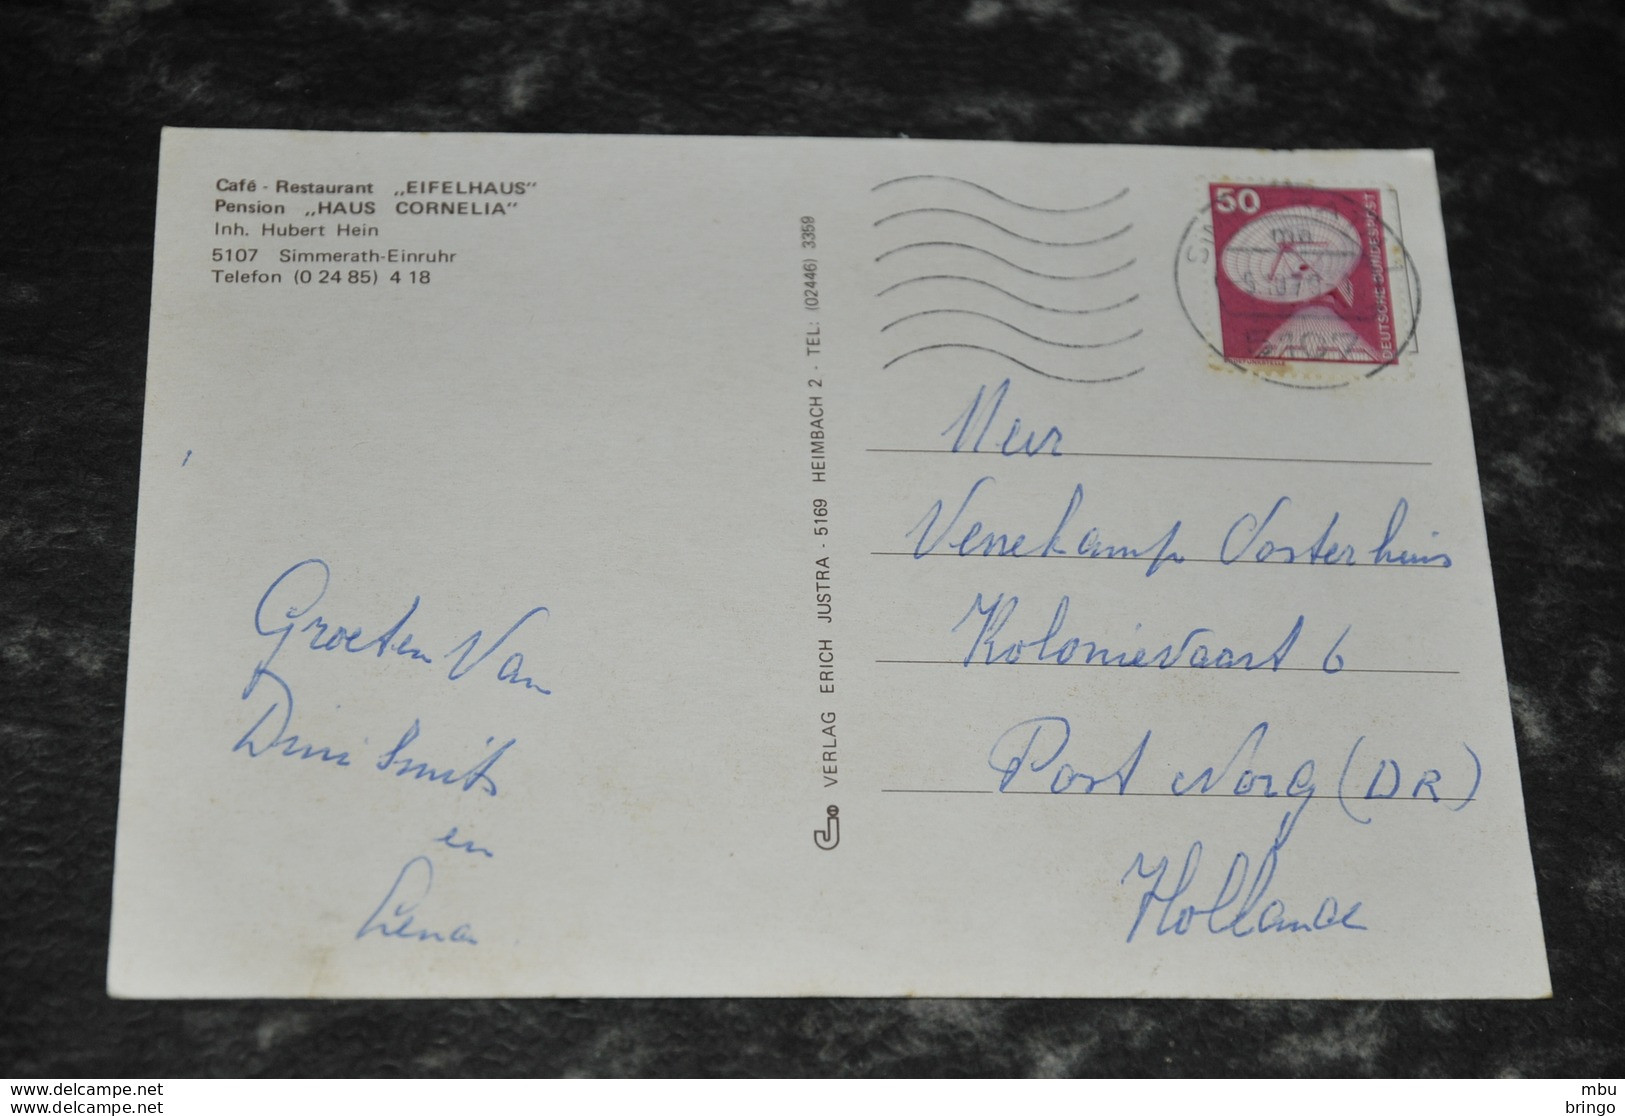 Café - Restaurant „EIFELHAUS“
Pension „HAUS CORNELIA“
Inh. Hubert Hein
5107 Simmerath-Einruhr
Telefon (0 24 85) 4 18
Groeten Van
Dini Smits
en
Lena
VERLAG ERICH JUSTRA - 5169 HEIMBACH 2 - TEL: (02446) 3359
50
DEUTSCHE BUNDESPOST
5107
Venekamp Oosterhuis
Kolonievaart 6
Post Norg (DR)
Hollande
www.delcampe.net
www.delcampe.net
mbu
bringo